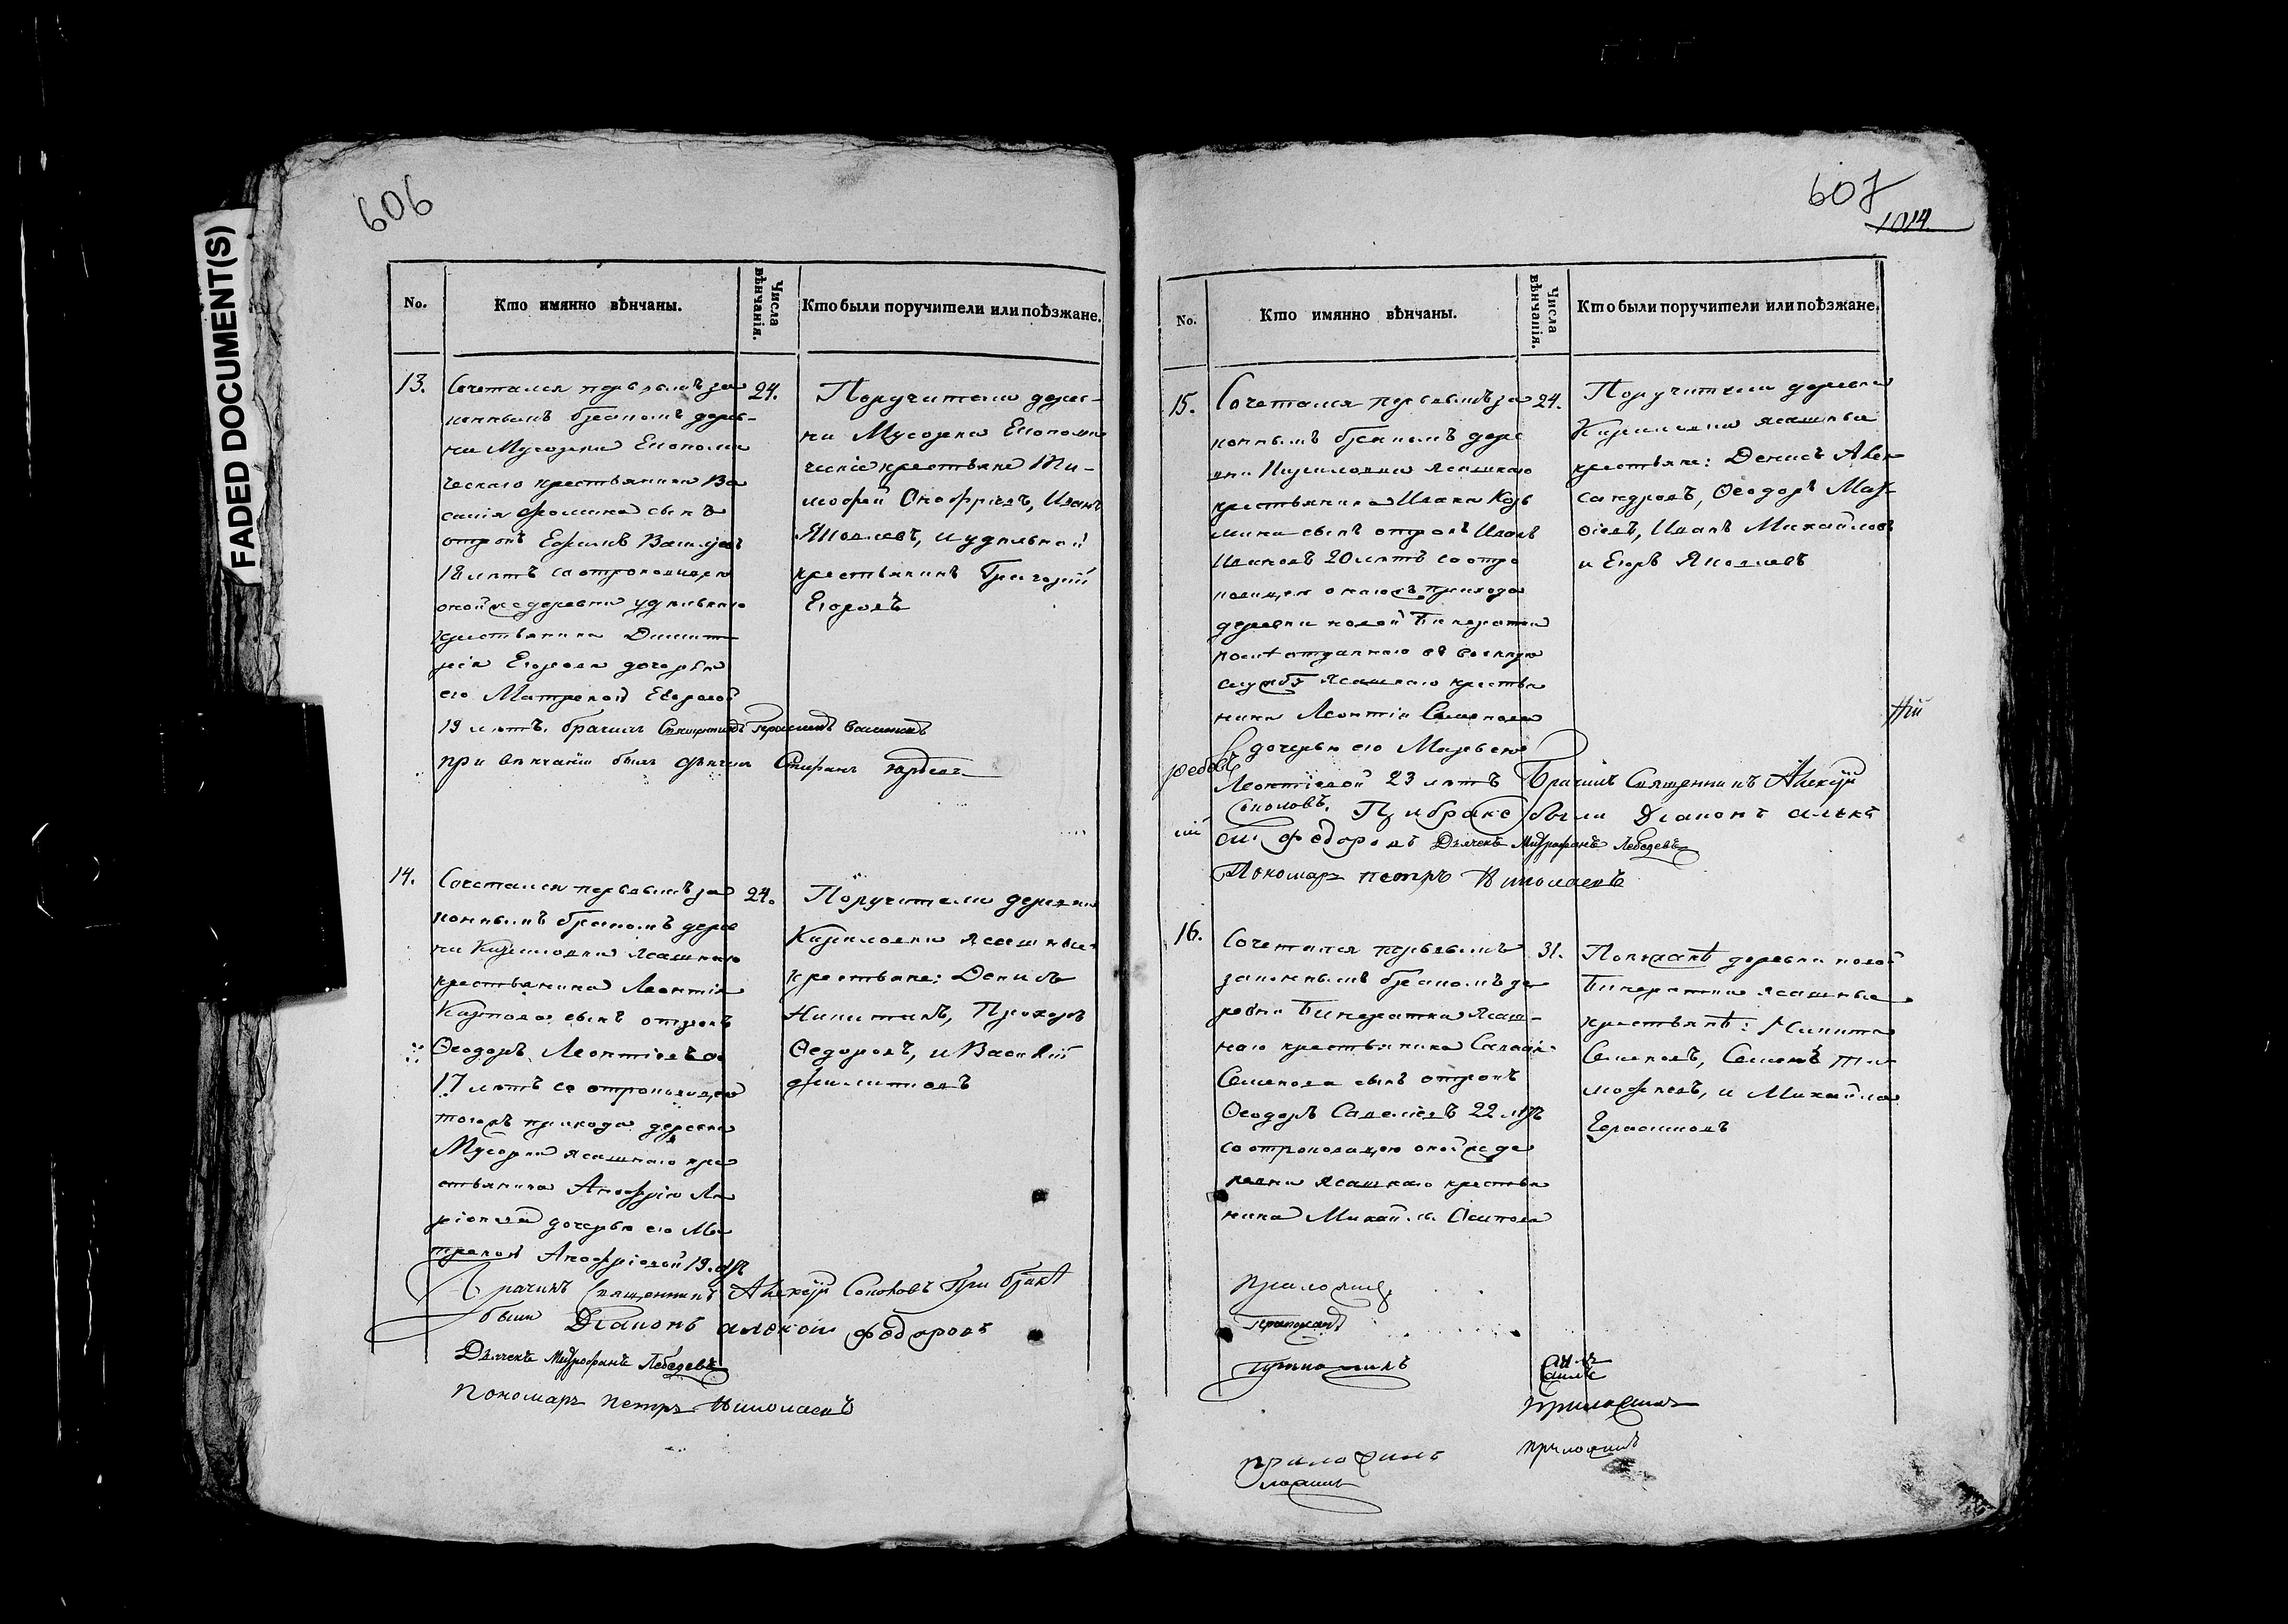 FADED DOCUMENT(S)
606
No.
Кто имянно вѣнчаны.
Числа вѣнчанія.
Кто были поручители или поѣзжане.
13.
Сочетался первымъ за
коннымъ бракомъ дерев-
ни Мусорки Економи
ческаго крестьянина Ва
силія Фомина сынъ
отрокъ Ефимъ Васильевъ
18 лѣтъ со отроковицею
оной же деревни удѣльнаго
крестьянина Димит
рія Егорова дочерью
его Матреной Егоровой
19 лѣтъ. брачилъ Священникъ Герасимъ
при вѣнчаніи былъ Дьячекъ Стефанъ
24.
Поручители дерев-
ни Мусорки Економи
ческіе крестьяне Ти-
мофей Онофріевъ, Иванъ
Яковлевъ, и удѣльной
крестьянинъ Григорій
Егоровъ
14.
Сочетался первымъ за
коннымъ бракомъ дерев
ни Кириловки ясашнаго
крестьянина Леонтія
Карпова сынъ отрокъ
Ѳеодоръ Леонтіевъ
17 лѣтъ со отроковицею
тогожъ прихода деревни
Мусорки ясашнаго кре
стьянина Анофрія Ла
ріонова дочерью его Ма
треной Анофріевой 19. лѣтъ
Брачилъ Священникъ Алексѣй Соколовъ При бракѣ
были Діаконъ алексѣй федоровъ
Дьячекъ Митрофанъ Лебедевъ
Пономарь петръ Николаевъ
24.
Поручители деревни
Кириловки ясашные
крестьяне: Данилъ
Никитинъ, Прохоръ
Ѳедоровъ, и Василій
Филиповъ
607
1014.
No.
Кто имянно вѣнчаны.
Числа вѣнчанія.
Кто были поручители или поѣзжане.
15.
Сочетался первымъ за
коннымъ бракомъ дере
вни Кириловки ясашнаго
крестьянина Ивана Козь
мина сынъ отрокъ Иванъ
Ивановъ 20 лѣтъ со отро
ковицею онагожъ прихода
деревни новой Бинаратки
отданнаго въ военную
службу ясашнаго крестья
нина Леонтія Семенова
дочерью его Марьею
Леонтіевой 23 лѣтъ Брачилъ Священникъ Алексѣй
Соколовъ. При браке были Діаконъ алекѣ
ѣй федоровъ Дьячекъ Митрофанъ Лебедевъ
Пономарь петръ Николаевъ
24.
Поручители деревни
Кириловки ясашные
крестьяне: Денисъ Алек
сандровъ, Ѳеодоръ Мат
ѳіевъ, Иванъ Михайловъ
и Егоръ Яковлевъ
16.
Сочетался первымъ
законнымъ бракомъ де
ревни Бинаратки ясаш-
наго крестьянина Савелія
Семенова сынъ отрокъ
Ѳеодоръ Савеліевъ 22 лѣтъ
со отроковицею оной же де
ревни ясашнаго крестья
нина Михайлы Осипова
31.
деревни новой
Бинаратки ясашные
крестьянѣ: Никита
Семеновъ, Семенъ Ти
мофеевъ, и Михайла
Герасимовъ
приложилъ
приложилъ
приложилъ